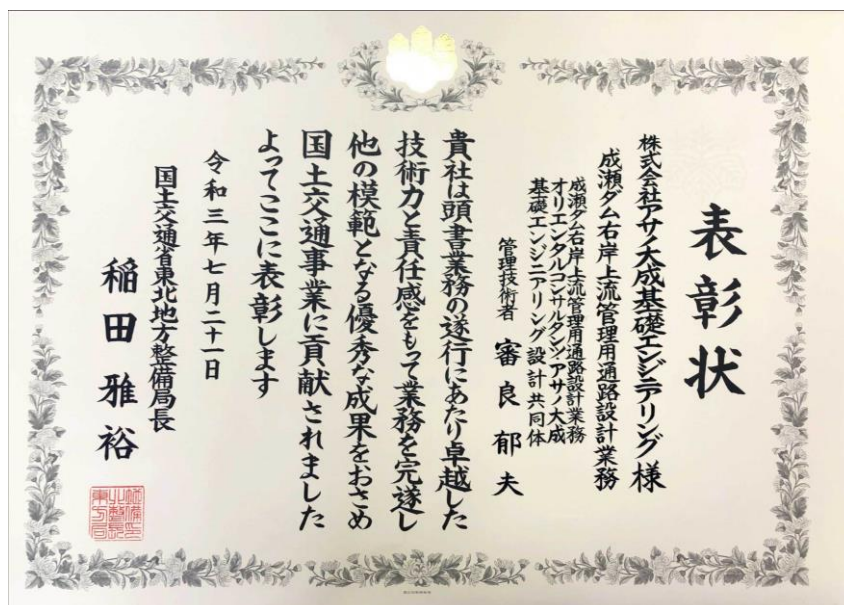 表彰状
株式会社アサノ大成基礎エンジニアリング 様
成瀬ダム右岸上流管理用通路設計業務
成瀬ダム右岸上流管理用通路設計業務
オリエンタルコンサルタンツ・アサノ大成
基礎エンジニアリング設計共同体
管理技術者 審良郁夫
貴社は頭書業務の遂行にあたり卓越した
技術力と責任感をもって業務を完遂し
他の模範となる優秀な成果をおさめ
国土交通事業に貢献されました
よってここに表彰します
令和三年七月二十一日
国土交通省東北地方整備局長
稲田雅裕